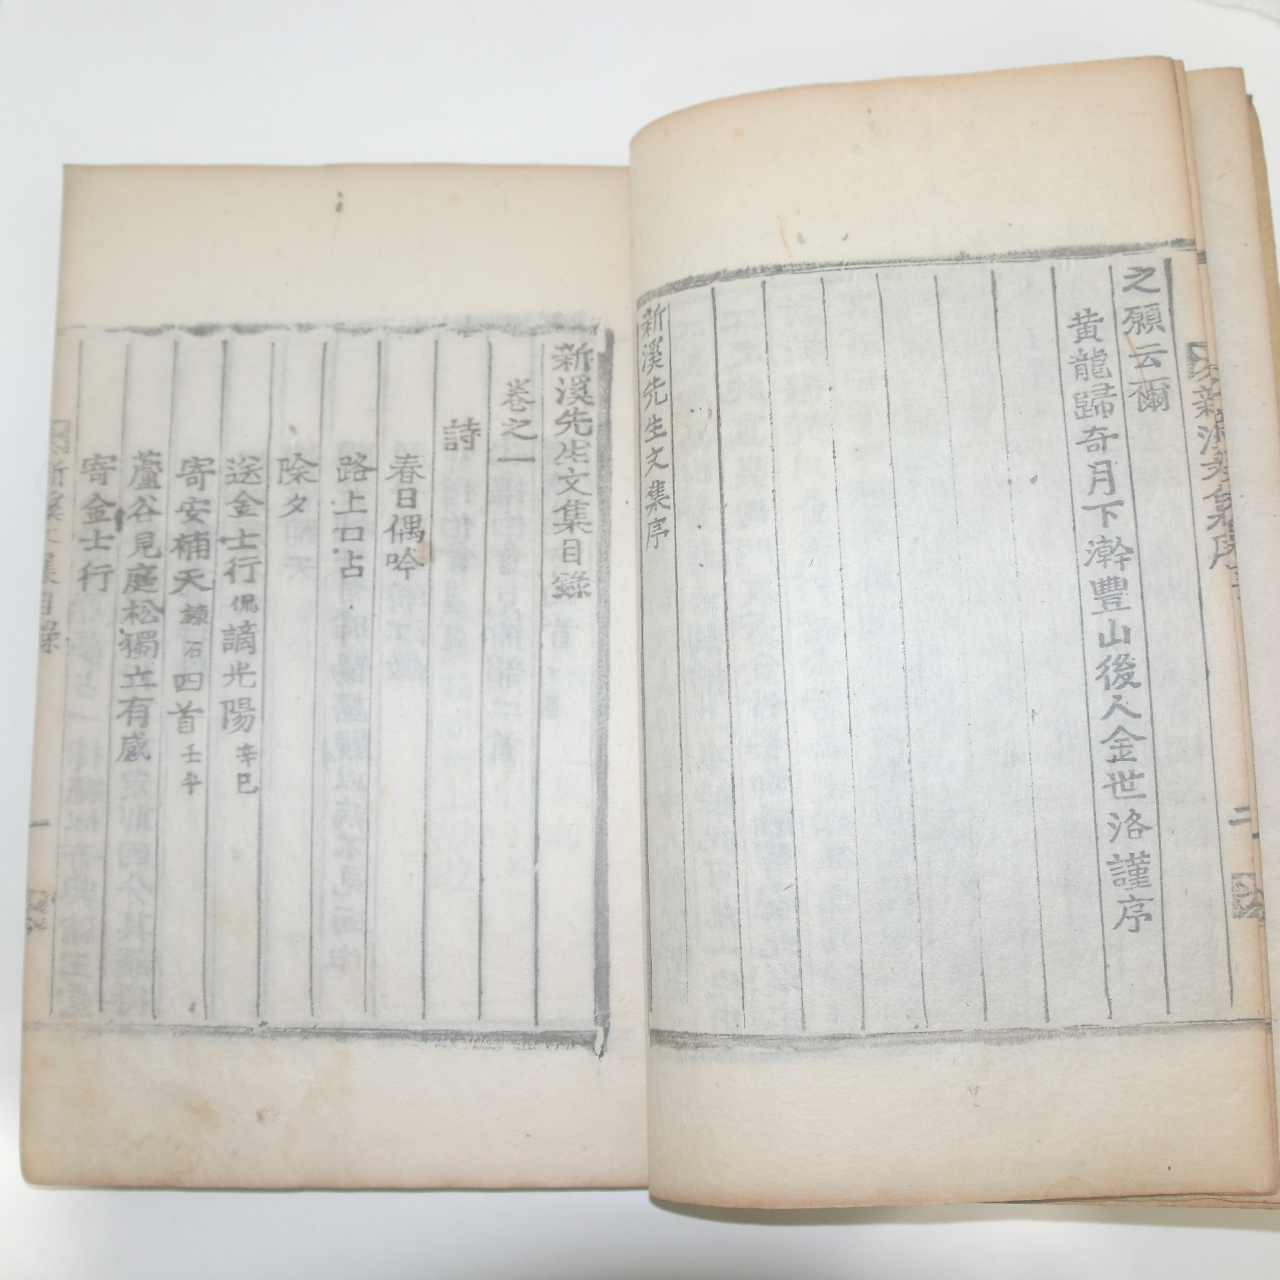 之願云爾
黃龍歸奇月下澣豐山後人金世洛謹序
新溪先生文集序
新溪先生文集目錄
卷之一
詩
春日偶吟
路上口占
除夕
送金士行侃謫光陽辛巳
寄安補天鍊石四首壬午
蘆谷見庭松獨立有感
寄金士行
一
二